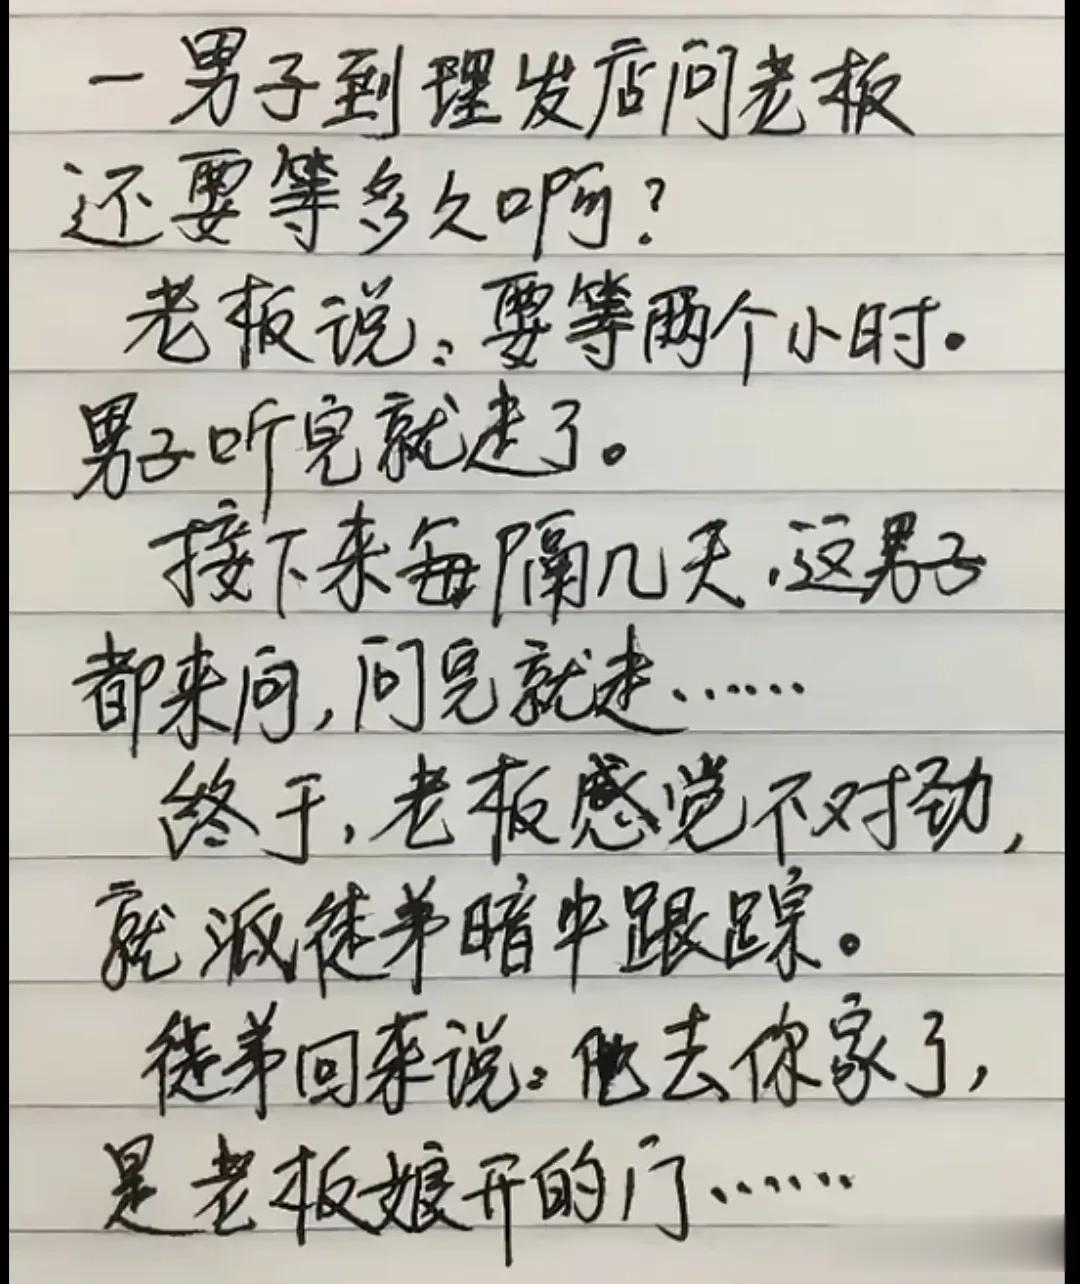 一男子到理发店问老板
还要等多久啊?
老板说:要等两个小时。
男子听完就走了。
接下来每隔几天,这男子
都来问,问完就走……
终于,老板感觉不对劲,
就派徒弟暗中跟踪。
徒弟回来说:他去你家了,
是老板娘开的门……